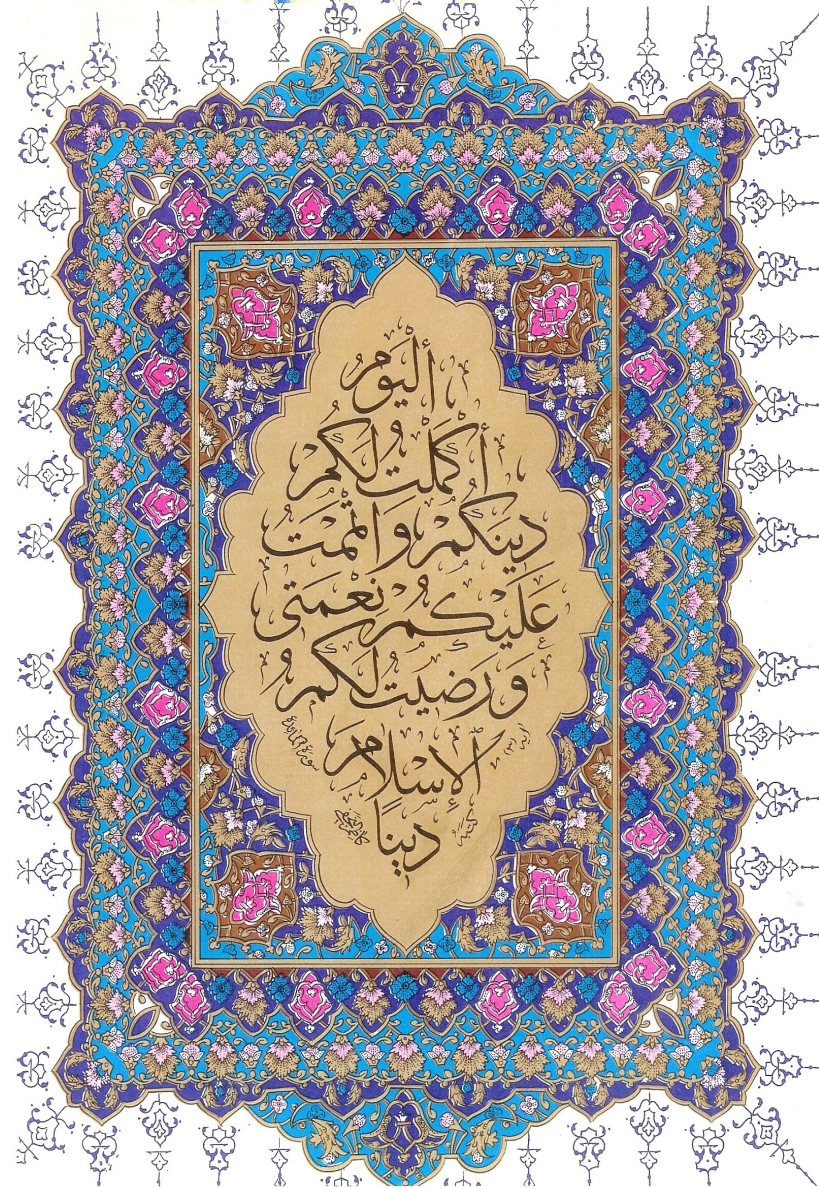 أَلْيَوْمَ
أَكْمَلْتُ لَكُمْ
دِينَكُمْ وَاتْمَمْتُ
عَلَيْكُمْ نِعْمَتِى
وَرَضِيتُ لَكُمُ
الْإِسْلَامَ
دِينًا
سورة المائدة
الآية (٣)
كتبه